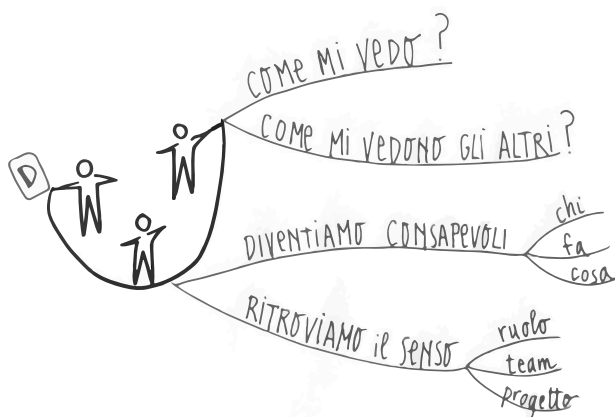 D
COME MI VEDO?
COME MI VEDONO GLI ALTRI?
DIVENTIAMO CONSAPEVOLI
chi
fa
cosa
RITROVIAMO il SENSO
ruolo
team
progetto